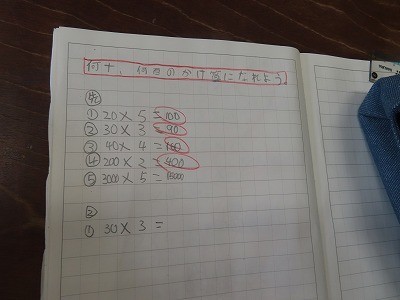 何十、何百のかけ算になれよう。
先
① 20×5=100
② 30×3=90
③ 40×4=160
④ 200×2=400
⑤ 3000×5=15000
① 30×3=